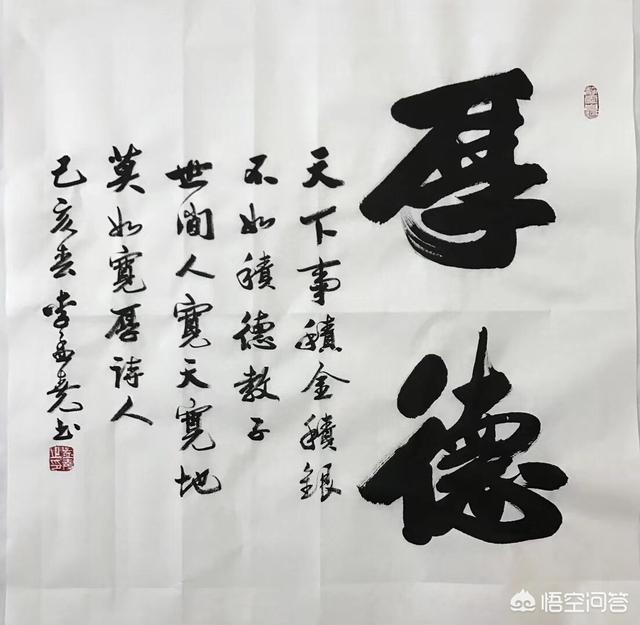 厚德
天下事積金積銀
不如積德教子
世間人寬天寬地
莫如寬厚詩人
己亥春李孟尧书
悟空问答